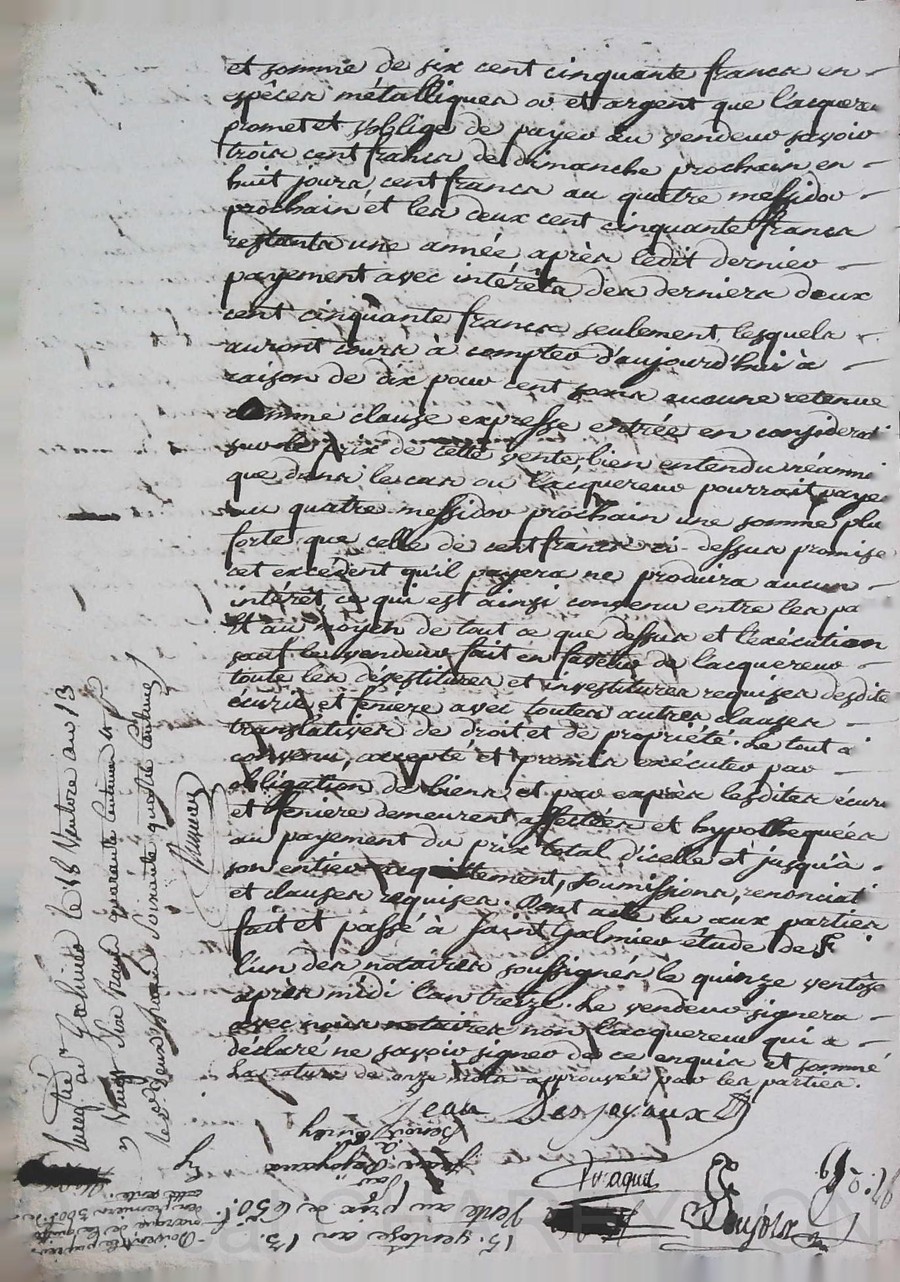 et somme de six cent cinquante francs en
espèces métalliques or et argent que l'acquereu
promet et s'oblige de payer au vendeur savoir
trois cent francs de dimanche prochain en
huit jours, cent francs au quatre messidor
prochain et les deux cent cinquante francs
restants une année après ledit dernier
payement avec intérêts des derniers deux
cent cinquante francs seulement, lesquels
auront cours à compter d'aujourd'hui à
raison de dix pour cent sans aucune retenue
comme clause expresse entrée en considerat
sur le prix de cette vente, bien entendu néanmoi
que dans le cas ou l'acquereur pourrait paye
au quatre messidor prochain une somme plu
forte que celle de cent francs ci-dessus promise
cet excédent qu'il payera ne produira aucun
intérêt, ce qui est ainsi convenu entre les pa
Et au moyen de tout ce que dessus et l'exécution
sauf le vendeur fait en faveur de l'acquereur
toute les désestitures et investitures requises desdite
écurie et feniere avec toutes autres clauses
translatives de droit et de propriété. Le tout a
convenu, accepté et promis exécuter par
obligation de biens et par exprès lesdites écuri
et feniere demeurent affectées et hypothequées
au payement du prix total d'icelle et jusqu'à
son entier acquittement, soumissions, renonciat
et clauses requises. Dont acte lu aux parties
fait et passé à Saint Galmier étude de F.
l'un des notaires soussignés le quinze ventôse
après midi l'an treize. Le vendeur signera
avec nous notaires non l'acquereur qui a
déclaré ne savoir signer de ce enquis et sommé
La rature de onze mots approuvée par les parties.
Jean Desjoyaux
Fraque
Poujola
15. ventose an 13.
Vente au prix de 650f.
par
Jean Dejoyaux
à
Benoit
le 18 Ventose an 13